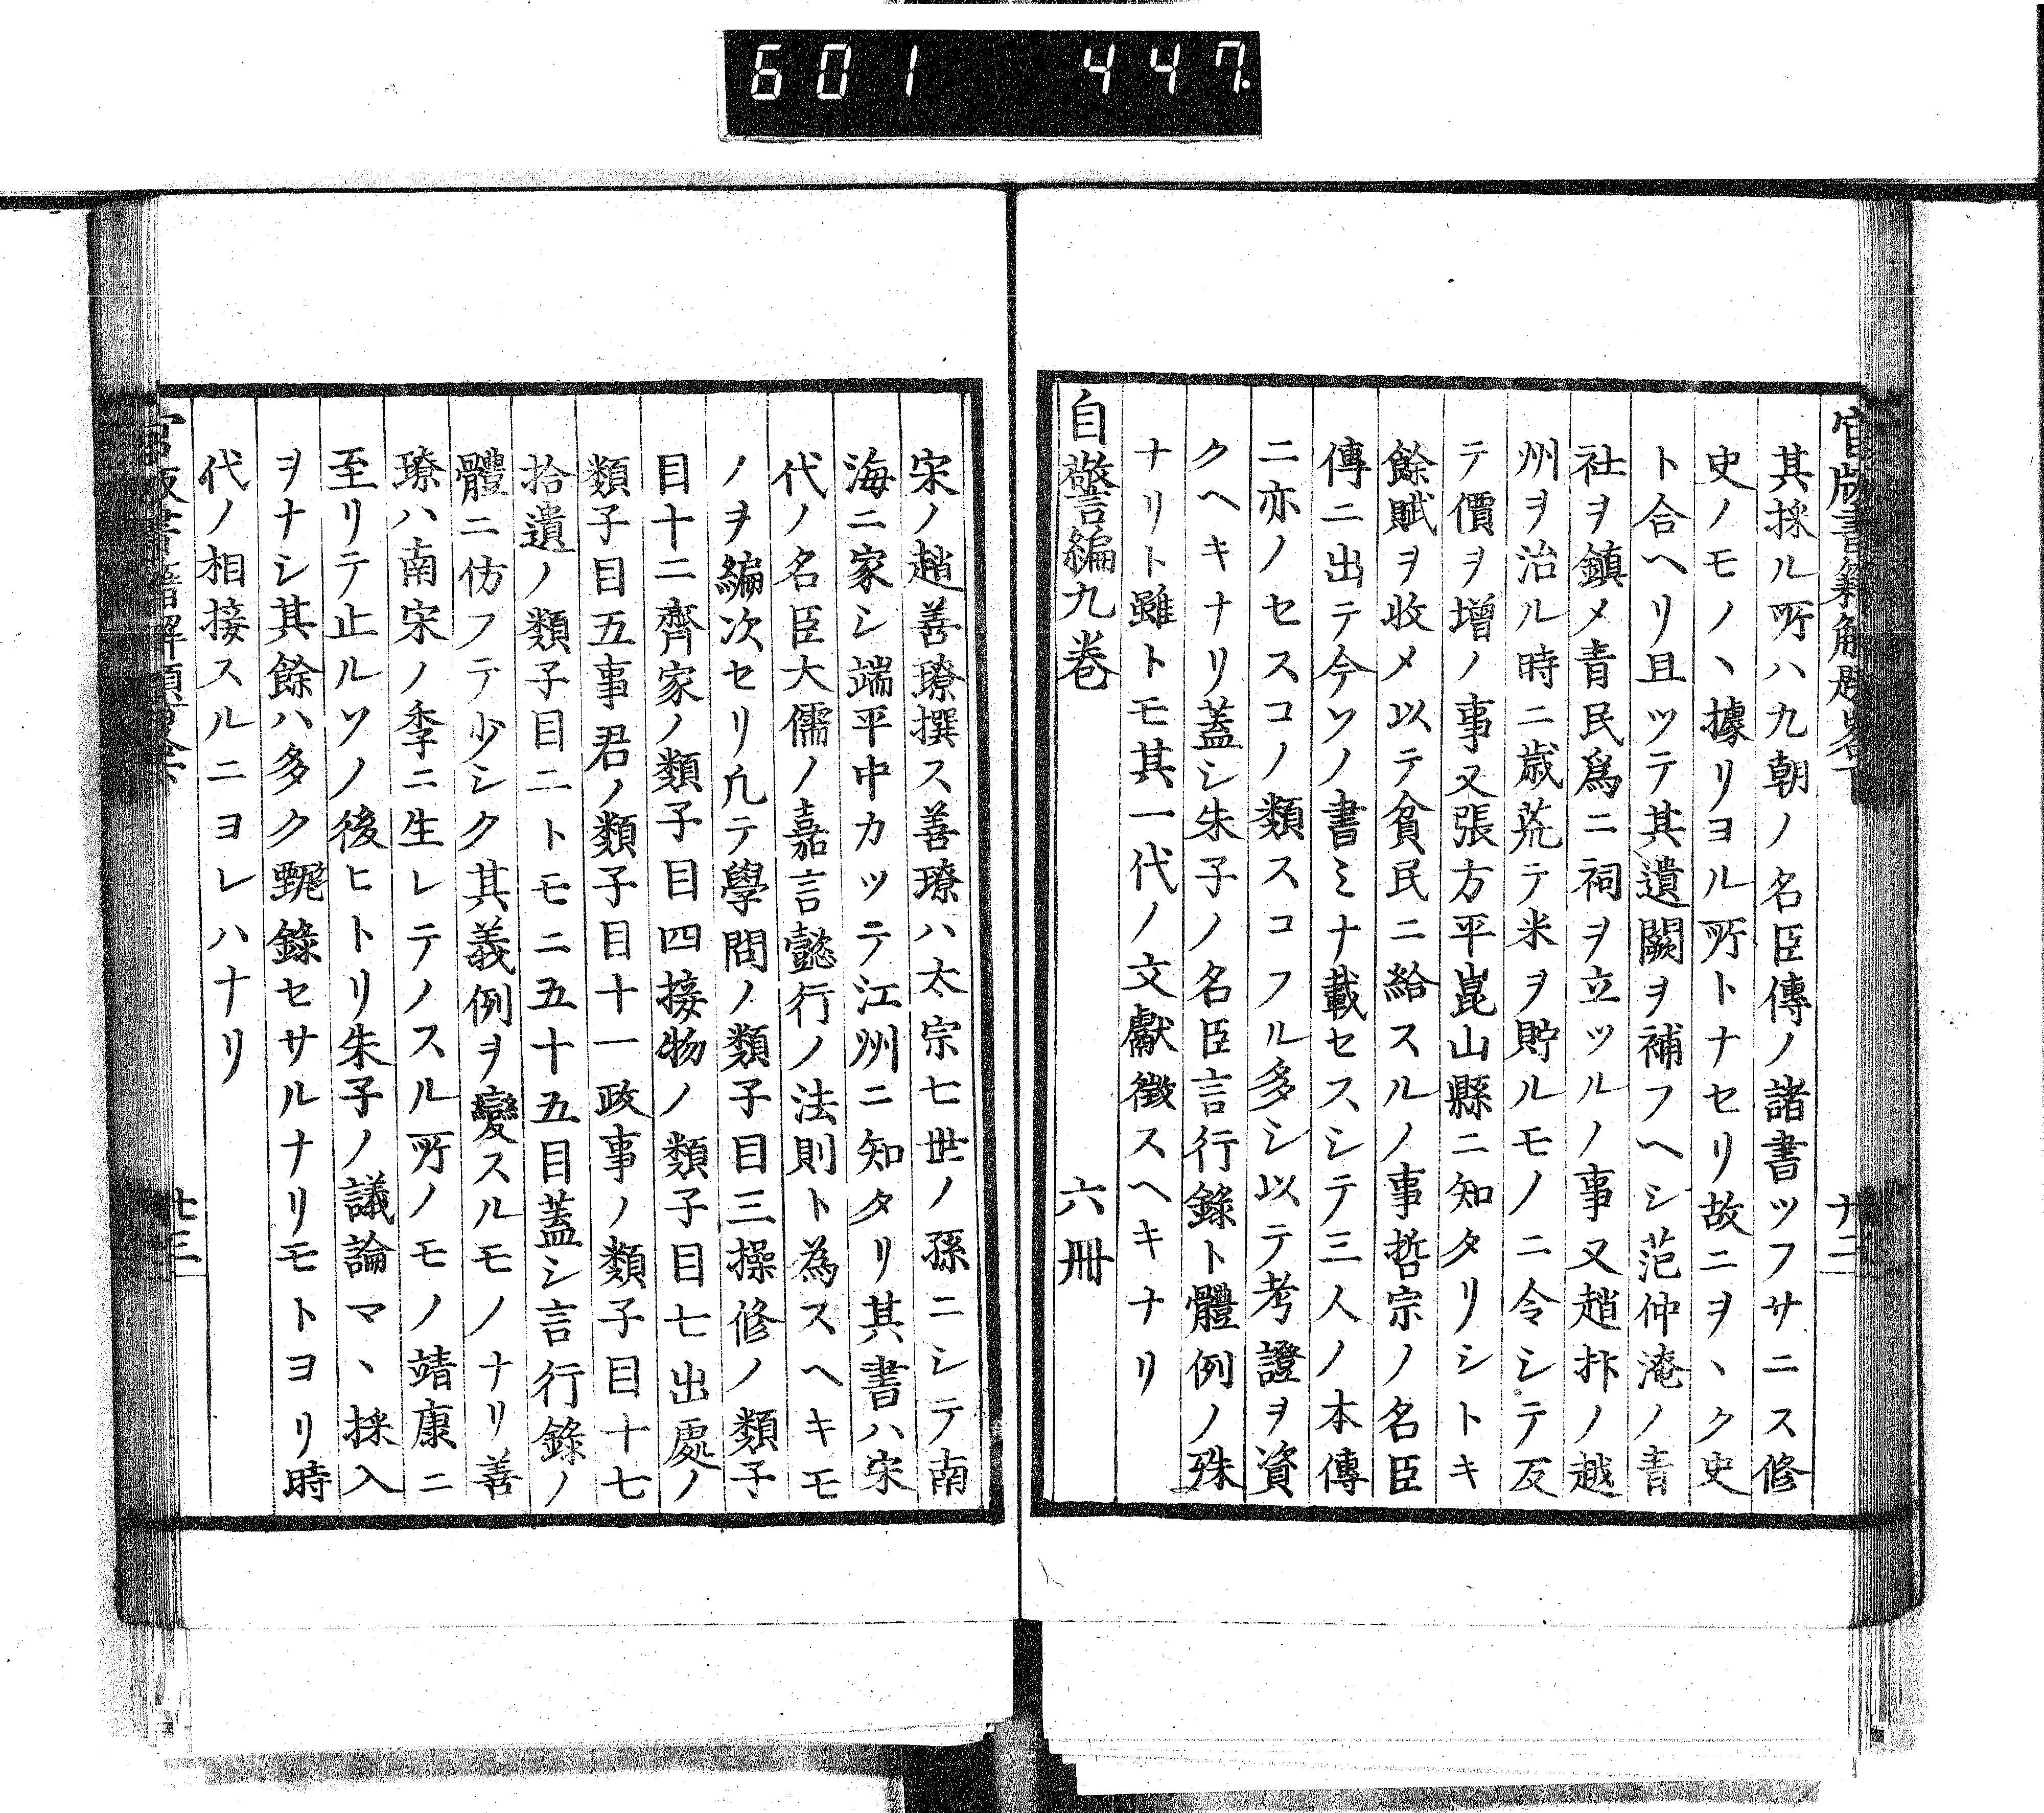 601 447.
官版書籍解題畧下
其採ル所ハ九朝ノ名臣傳ノ諸書ツフサニス修
史ノモノヽ據リヨル所トナセリ故ニヲヽク史
ト合ヘリ且ツテ其遺闕ヲ補フヘシ范仲淹ノ青
社ヲ鎮メ青民爲ニ祠ヲ立ツルノ事又趙抃ノ越
州ヲ治ル時ニ歳荒テ米ヲ貯ルモノニ令シテ反
テ價ヲ増ノ事又張方平崑山縣ニ知タリシトキ
餘賦ヲ收メ以テ貧民ニ給スルノ事哲宗ノ名臣
傳ニ出テ今ソノ書ミナ載セスシテ三人ノ本傳
ニ亦ノセスコノ類スコフル多シ以テ考證ヲ資
クヘキナリ蓋シ朱子ノ名臣言行錄ト體例ノ殊
ナリト雖トモ其一代ノ文獻徴スヘキナリ
自警編九巻 六冊
宋ノ趙善璙撰ス善璙ハ太宗七世ノ孫ニシテ南
海ニ家シ端平中カツテ江州ニ知タリ其書ハ宋
代ノ名臣大儒ノ嘉言懿行ノ法則ト為スヘキモ
ノヲ編次セリ凢テ學問ノ類子目三操修ノ類子
目十二齊家ノ類子目四接物ノ類子目七出處ノ
類子目五事君ノ類子目十一政事ノ類子目十七
拾遺ノ類子目二トモニ五十五目蓋シ言行錄ノ
體ニ仿フテ少シク其義例ヲ變スルモノナリ善
璙ハ南宋ノ季ニ生レテノスル所ノモノ靖康ニ
至リテ止ルソノ後ヒトリ朱子ノ議論マヽ採入
ヲナシ其餘ハ多ク甄錄セサルナリモトヨリ時
代ノ相接スルニヨレハナリ